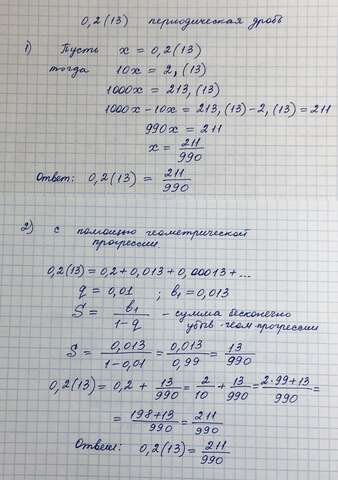 0,2(13) периодическая дробь
1) Пусть x = 0,2(13)
тогда 10x = 2,(13)
1000x = 213,(13)
1000x - 10x = 213,(13) - 2,(13) = 211
990x = 211
x = 211/990
Ответ: 0,2(13) = 211/990
2) с помощью геометрической
прогрессии
0,2(13) = 0,2 + 0,013 + 0,00013 + ...
q = 0,01 ; b₁ = 0,013
S = b₁/(1-q) - сумма бесконечно
убыв. геом. прогрессии
S = 0,013/(1-0,01) = 0,013/0,99 = 13/990
0,2(13) = 0,2 + 13/990 = 2/10 + 13/990 = (2·99+13)/990 =
= (198+13)/990 = 211/990
Ответ: 0,2(13) = 211/990